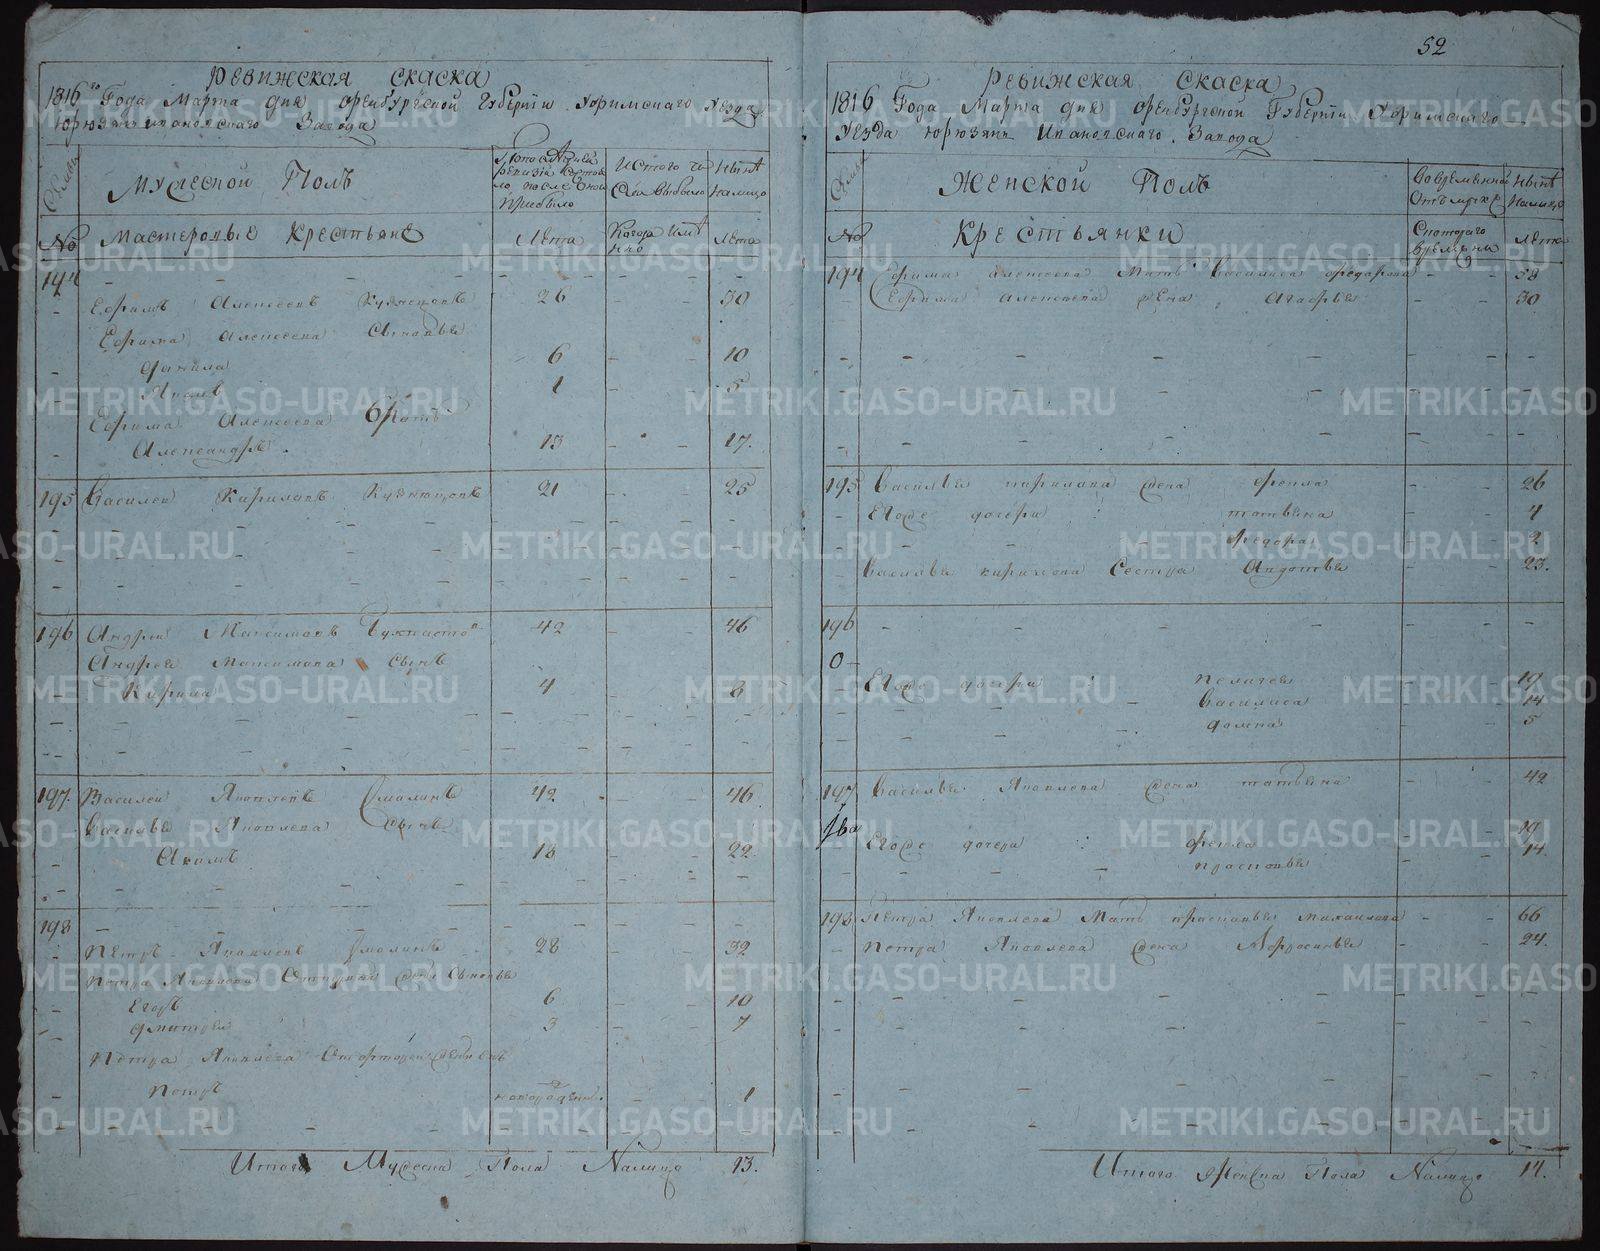 52
Ревижская скаска
1816го Года Марта дня оренбургской Губернїи Уфимскаго уезда
Юрюзань ивановскаго Завода
мужеской Полъ
Ныне налицо
№ Мастеровые Крестьяне Лета Лета
194
Ефримъ Алексеевъ Кузнецовъ 26 30
Ефрима Алексеева Сыновья
данила 6 10
Яковъ 1 5
Ефрима Алексеева братъ
Александръ 13 17.
195 Василеи Кириловъ Кузнецовъ 21 25
196 Андреи Максимовъ 42 46
Андрея Максимова сынъ
Кирила 4 8
197. Василеи Яковлевъ Смолинъ 42 46
Василья Яковлева сынъ
Акимъ 18 22
198
Петръ Яковлевъ Смолинъ 28 32
Петра Яковлева Сыновья
Егоръ 6 10
дмитреи 3 7
Петра Яковлева
Петръ 1
Итого Мужеска Пола Налицо 13.
Ревижская Скаска
1816 Года Марта дня оренбургской Губернїи Уфимскаго
Уезда Юрюзань Ивановскаго Завода
Женской Полъ
Ныне Налицо
№ Крестьянки Лета
194 Ефрима алексеева Мать Василиса федорова 58
Ефрима алексеева жена Агафья 30
195 Василья кирилова жена фекла 26
Егоже дочери татьяна 4
федора 2
Василья кирилова Сестра Авдотья 23.
196
0
Егоже дочери пелагея 19
Василиса 14
домна 5
197 Василья Яковлева жена татьяна 42
Егоже дочери фекла 19
прасковья 14.
198 Петра Яковлева Мать прасковья михаилова 66
Петра Яковлева жена Афросинья 24.
Итого Женска Пола Налицо 14.
METRIKI.GASO-URAL.RU